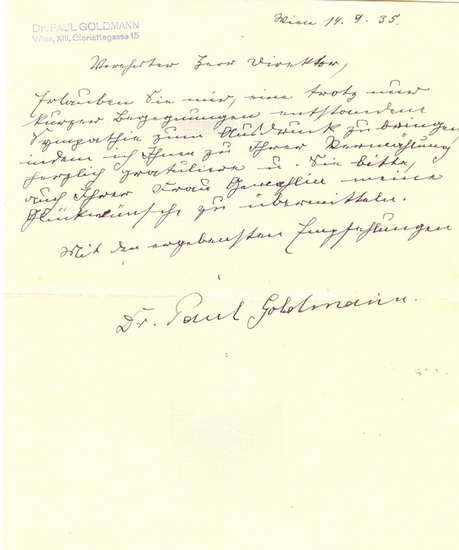 Dr. PAUL GOLDMANN
Wien, XIII, Gloriettegasse 15
Wien 14. 9. 35.
Verehrter Herr Direktor,
Erlauben Sie mir, eine trotz nur
kurzer Begegnungen entstandene
Sympathie zum Ausdruck zu bringen,
indem ich Ihnen zu Ihrer Vermählung
herzlich gratuliere u. Sie bitte,
auch Ihrer Frau Gemahlin meine
Glückwünsche zu übermitteln.
Mit den ergebensten Empfehlungen
Dr. Paul Goldmann.